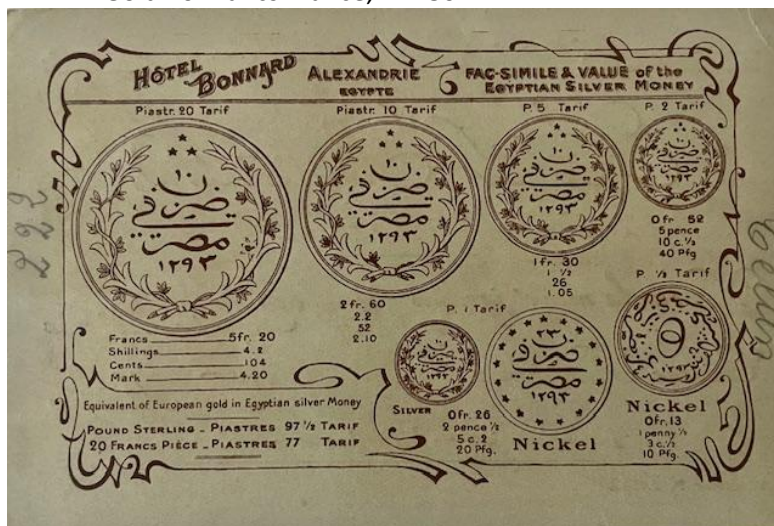 HÔTEL BONNARD ALEXANDRIE EGYPTE
FAC-SIMILE & VALUE of the EGYPTIAN SILVER MONEY
Piastr. 20 Tarif
١٠
ضرب في
مصر
١٢٩٣
Francs 5fr. 20
Shillings 4.2
Cents 104
Mark 4.20
Piastr. 10 Tarif
١٠
ضرب في
مصر
١٢٩٣
2 fr. 60
2.2
52
2.10
P. 5 Tarif
١٠
ضرب في
مصر
١٢٩٣
1 fr. 30
1 ½
26
1.05
P. 2 Tarif
١٠
ضرب في
مصر
١٢٩٣
0 fr 52
5 pence
10 c. ½
40 Pfg
P. 1 Tarif
ضرب في
مصر
١٢٩٣
SILVER
0 fr. 26
2 pence ½
5 c. 2
20 Pfg.
٢٣
ضرب في
مصر
١٢٩٣
Nickel
P. ½ Tarif
١٢٩٣
Nickel
0fr. 13
1 penny ½
3 c. ½
10 Pfg
Equivalent of European gold in Egyptian silver Money
POUND STERLING - PIASTRES 97 ½ TARIF
20 FRANCS PIÈCE - PIASTRES 77 TARIF
222